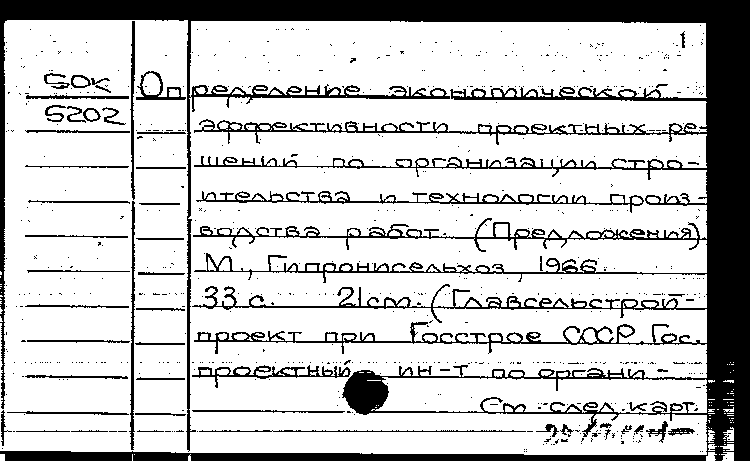 1
БОК Определение экономической
5202 эффективности проектных ре-
шений по организации стро-
ительства и технологии произ-
водства работ. (Предложения)
М., Гипронисельхоз, 1966.
33 с. 21 cm. (Главсельстрой-
проект при Госстрое СССР. Гос.
проектный ин-т по органи-
См. след. карт.